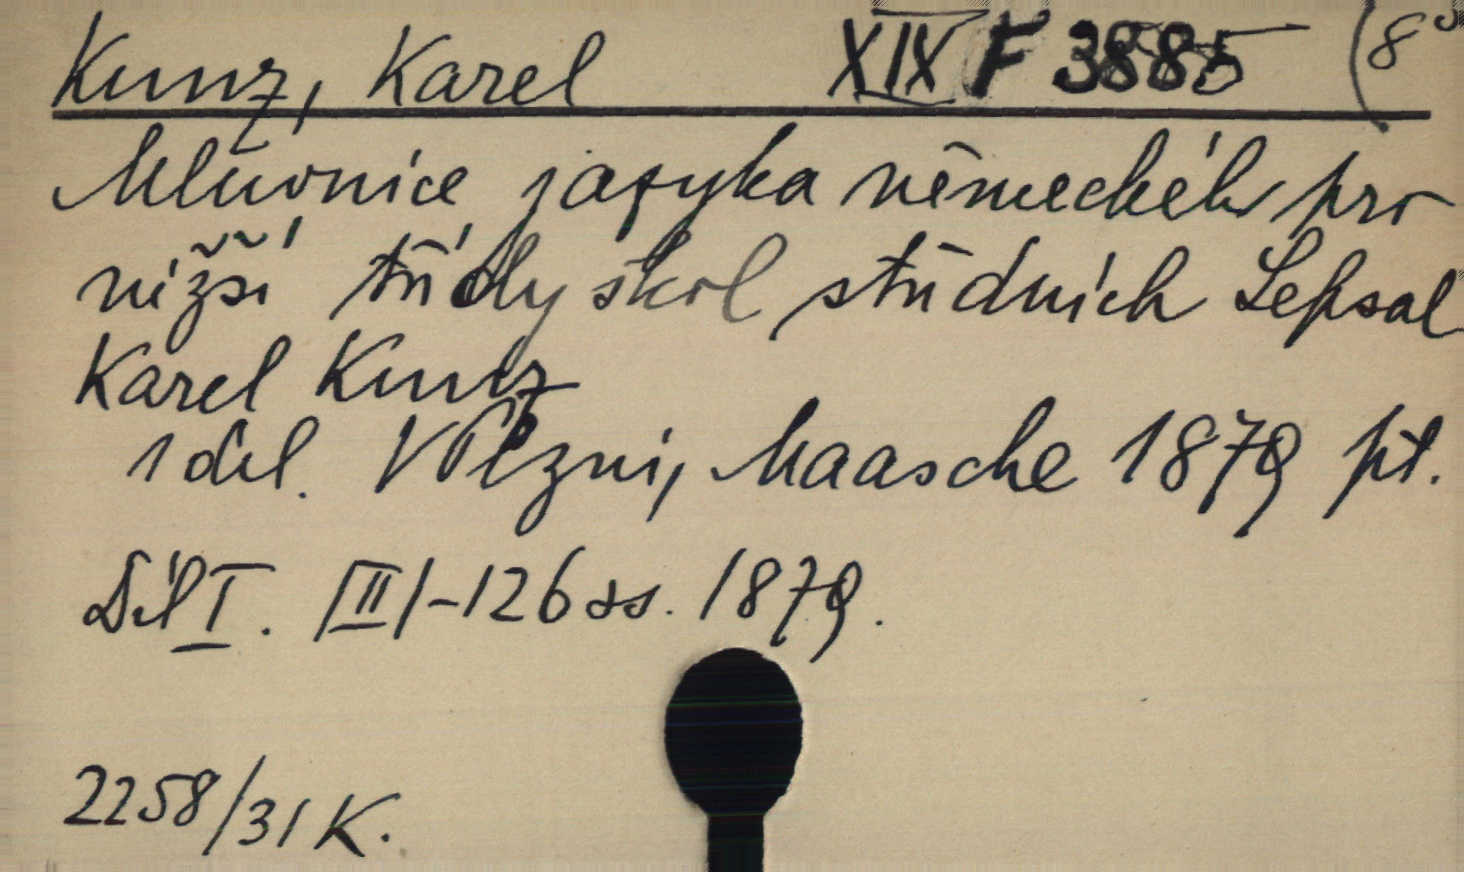 Kunz, Karel XIX F 3885 (8°
Mluvnice jazyka německého pro
nižší třídy škol středních Sepsal
Karel Kunz
1 díl. V Plzni, Maasche 1879 pt.
Díl I. |II|-126 ss. 1879.
2258/31 K.